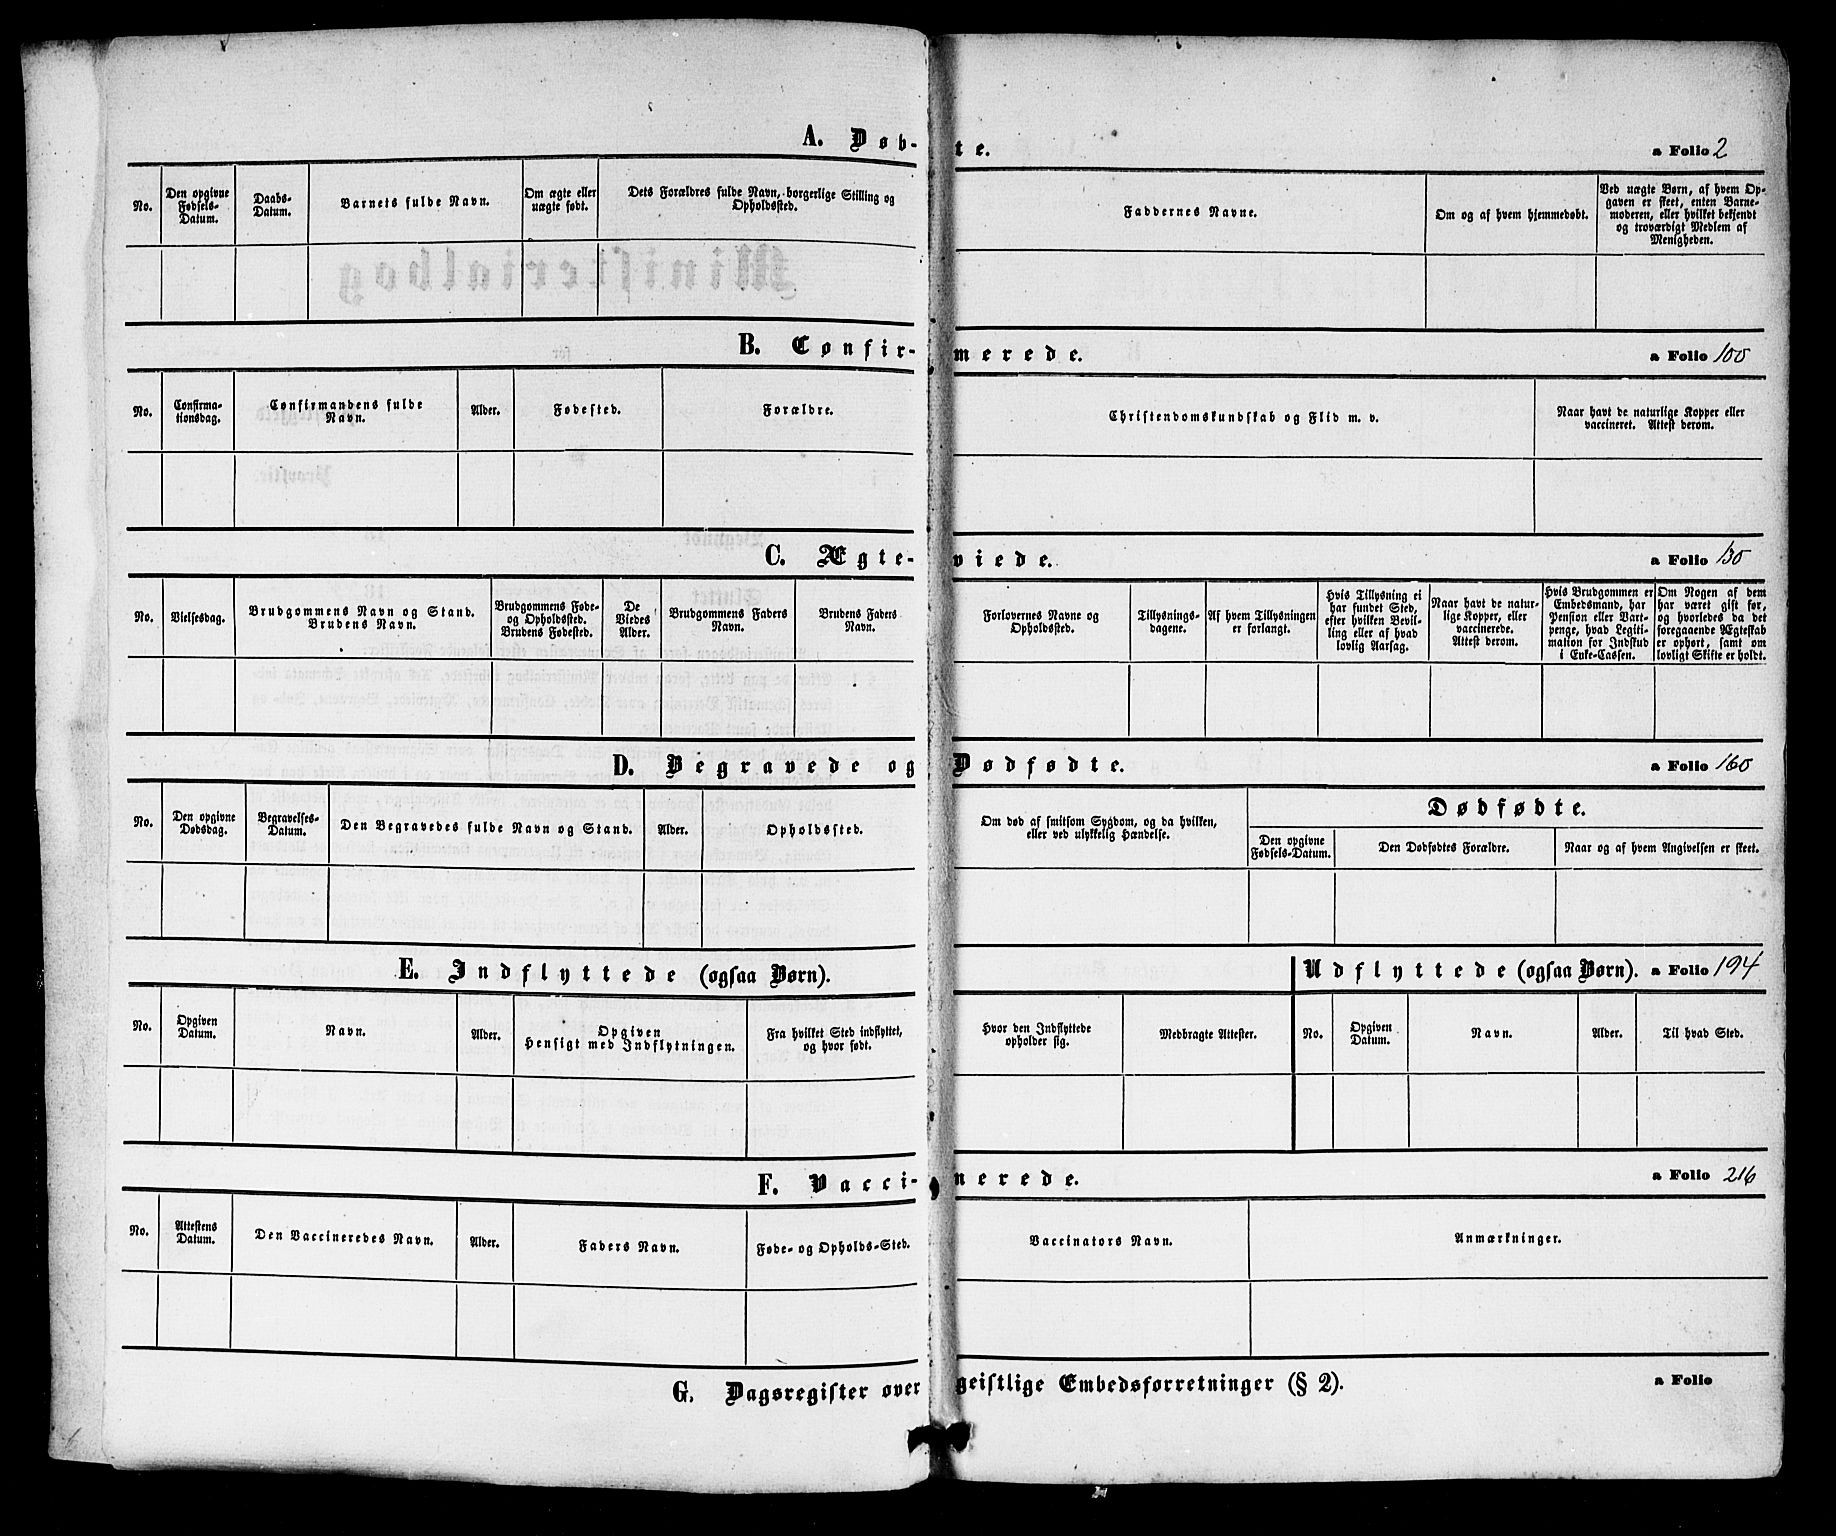 A. Døb-te. a Folio 2
No.
Den opgivne
Fødsels-
Datum.
Daabs-
Datum.
Barnets fulde Navn.
Om ægte eller
uægte født.
Dets Forældres fulde Navn, borgerlige Stilling og
Opholdssted.
Faddernes Navne.
Om og af hvem hjemmedøbt.
Ved uægte Børn, af hvem Op-
gaven er skeet, enten Barne-
moderen, eller hvilket bekjendt
og troværdigt Medlem af
Menigheden.
B. Confir-merede. a Folio 100
No.
Confirma-
tionsdag.
Confirmandens fulde
Navn.
Alder.
Fødested.
Forældre.
Christendomskundskab og Flid m. v.
Naar havt de naturlige Kopper eller
vaccineret. Attest derom.
C. Ægte-viede. a Folio 130
No.
Vielsesdag.
Brudgommens Navn og Stand.
Brudens Navn.
Brudgommens Føde-
og Opholdssted.
Brudens Fødested.
De
Viedes
Alder.
Brudgommens Faders
Navn.
Brudens Faders
Navn.
Forlovernes Navne og
Opholdssted.
Tillysnings-
dagene.
Af hvem Tillysningen
er forlangt.
Hvis Tillysning ei
har fundet Sted,
efter hvilken Bevil-
ling eller af hvad
lovlig Aarsag.
Naar havt de natur-
lige Kopper, eller
vaccinerede.
Attest derom.
Hvis Brudgommen er
Embedsmand, har
Pension eller Vart-
penge, hvad Legiti-
mation for Indskud
i Enke-Cassen.
Om Nogen af dem
har været gift før,
og hvorledes da det
foregaaende Ægteskab
er ophørt, samt om
lovligt Skifte er holdt.
D. Begravede og Dødfødte. a Folio 160
No.
Den opgivne
Dødsdag.
Begravelses-
Datum.
Den Begravedes fulde Navn og Stand.
Alder.
Opholdssted.
Om død af smitsom Sygdom, og da hvilken,
eller ved ulykkelig Hændelse.
Dødfødte.
Den opgivne
Fødsels-Datum.
Den Dødfødtes Forældre.
Naar og af hvem Angivelsen er skeet.
E. Indflyttede (ogsaa Børn). Udflyttede (ogsaa Børn). a Folio 194
No.
Opgiven
Datum.
Navn.
Alder.
Opgiven
Hensigt med Indflytningen.
Fra hvilket Sted indflyttet,
og hvor født.
Hvor den Indflyttede
opholder sig.
Medbragte Attester.
No.
Opgiven
Datum.
Navn.
Alder.
Til hvad Sted.
F. Vacci-nerede. a Folio 216
No.
Attestens
Datum.
Den Vaccineredes Navn.
Alder.
Faders Navn.
Føde- og Opholds-Sted.
Vaccinators Navn.
Anmærkninger.
G. Dagsregister over geistlige Embedsforretninger (§ 2). a Folio